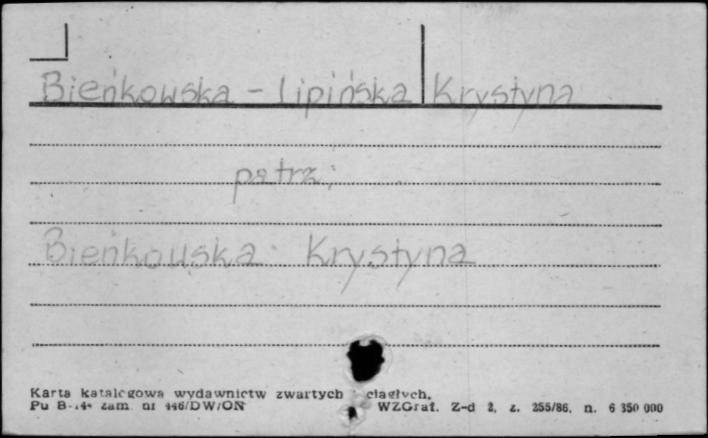 Bieńkowska - Lipińska Krystyna
patrz:
Bieńkowska Krystyna
Karta katalogowa wydawnictw zwartych ciągłych.
Pu B- zam. nr 446/DW/ON WZGraf. Z-d 2, z. 255/86, n. 6 350 000